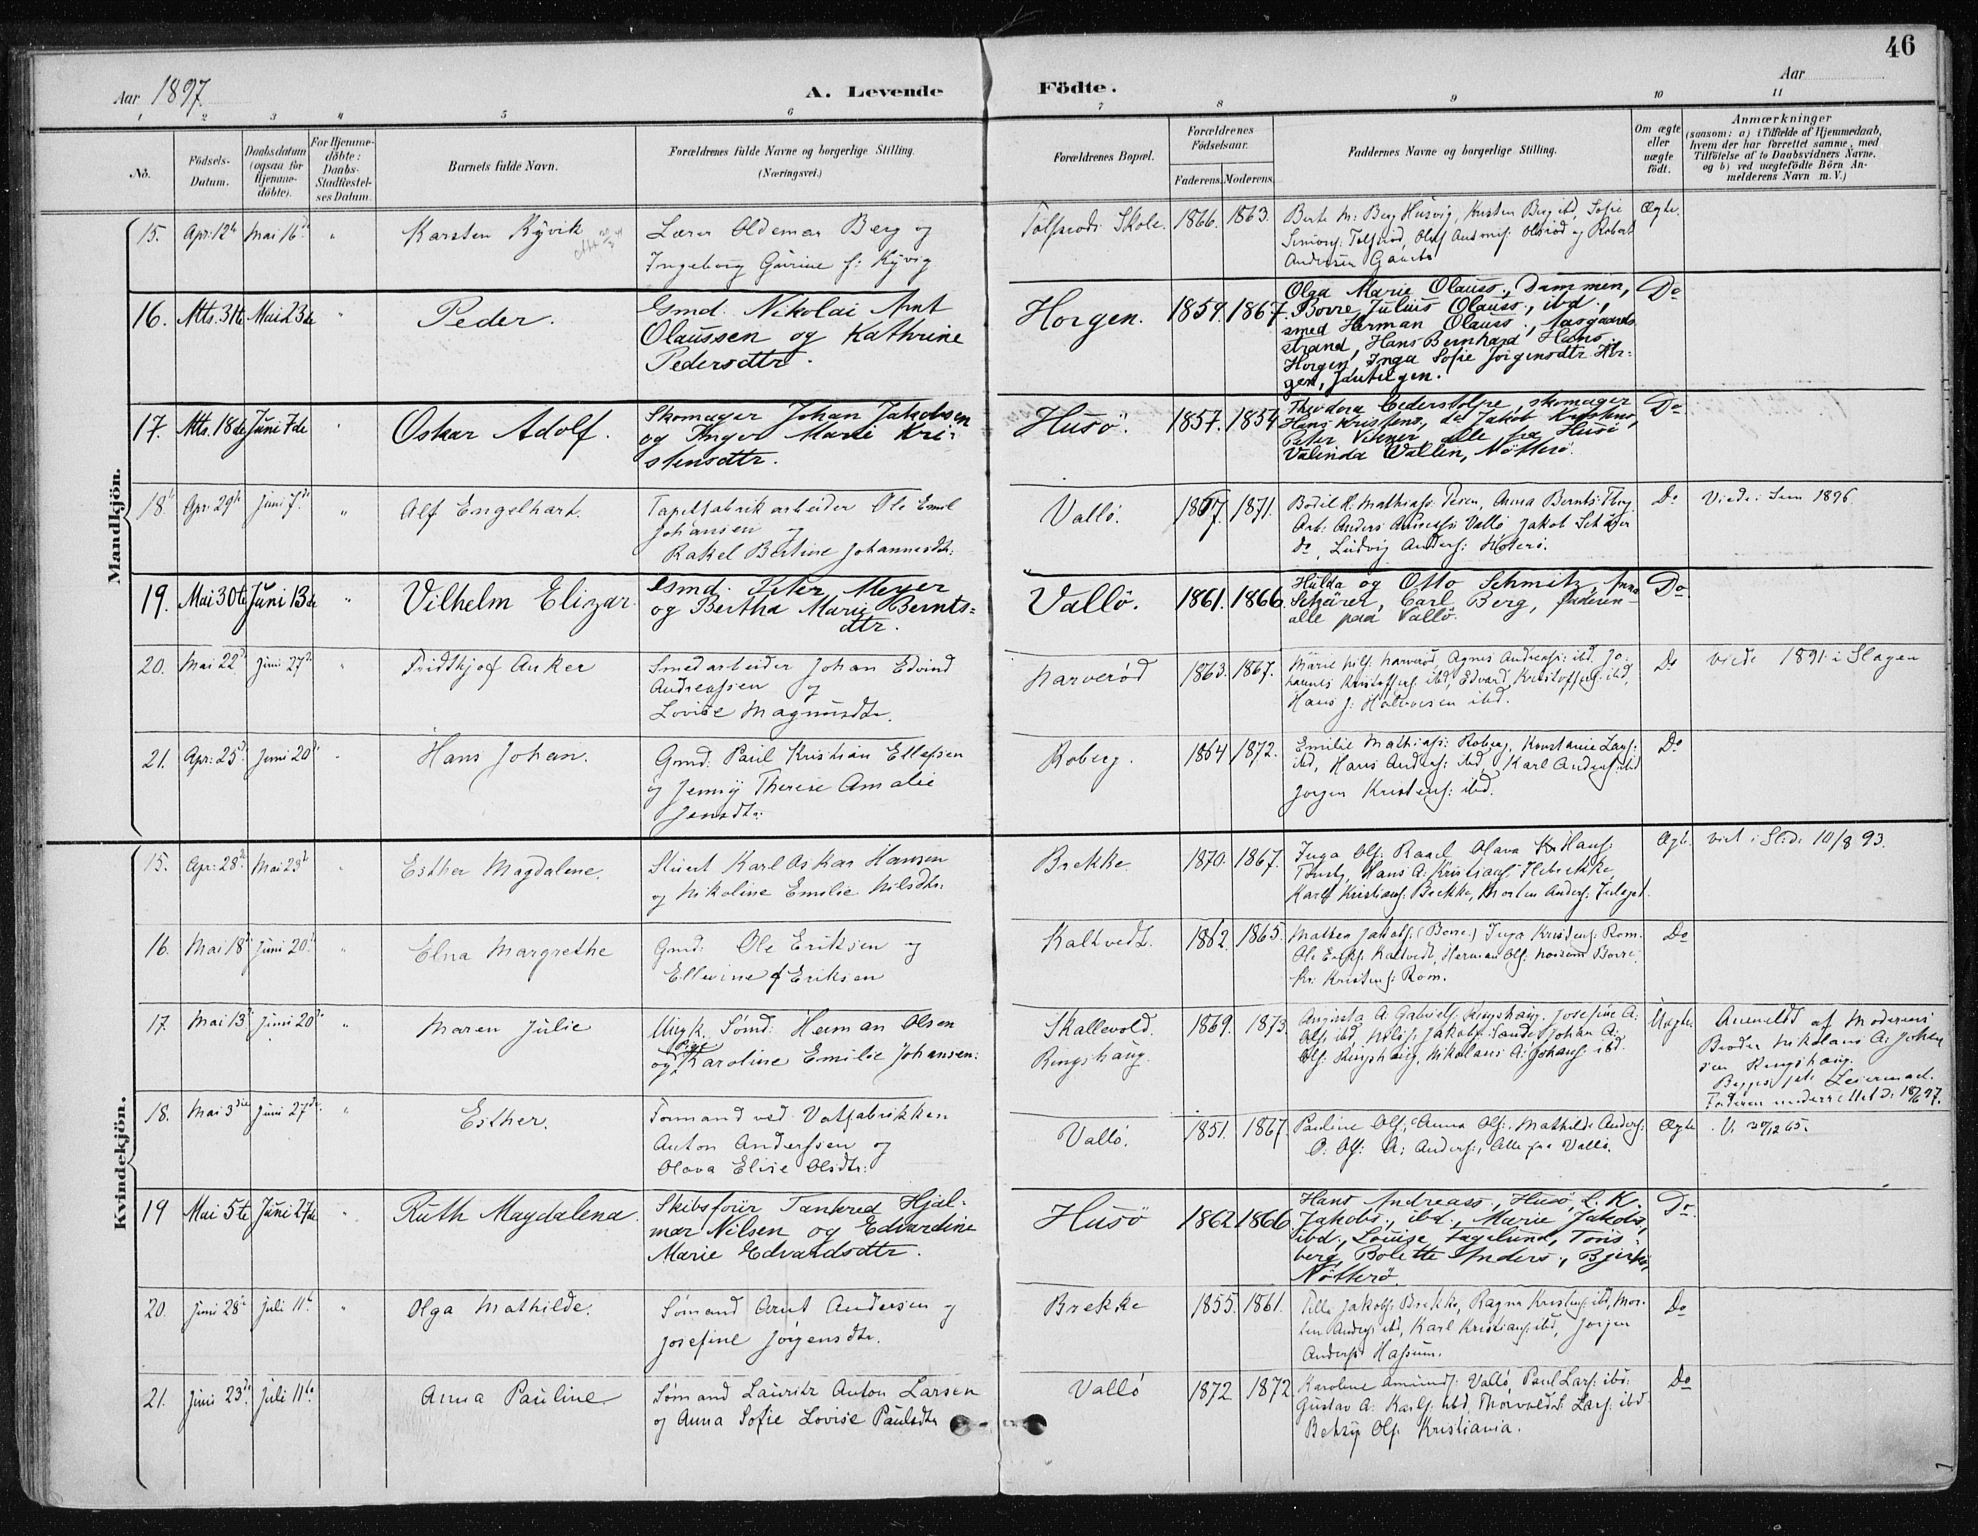 46
Aar 1897.
A. Levende Födte.
Aar
1 2 3 4 5 6 7 8 9 10 11
No.
Födsels-
Datum.
Daabsdatum
(ogsaa for
Hjemme-
döbte).
For Hjemme-
döbte:
Daabs-
Stadfæstel-
ses Datum.
Barnets fulde Navn.
Forældrenes fulde Navne og borgerlige Stilling.
(Næringsvei.)
Forældrenes Bopæl.
Forældrenes
Födselsaar.
Faderens. Moderens.
Faddernes Navne og borgerlige Stilling.
Om ægte
eller
uægte
födt.
Anmærkninger
(saasom: a) i Tilfælde af Hjemmedaab,
hvem der har forrettet samme, med
Tilföielse af to Daabsvidners Navne,
og b) ved uægtefödte Börn An-
melderens Navn m. V.)
Mandkjön.
15. Apr: 12te Mai 16de " Karsten Ryvik
Lærer Oldemar Berg og
Ingeborg Gurine f: Ryvig
Tolfsrods Skole. 1866. 1863.
Berte M: Berg Husvig, Kristen Berg ibd, Sofie
Simons: Tolfsrød, Olaf Antons: Olsrød og Robert
Andersen
Ægte.
16. Mts. 31te Mai 23de " Peder.
Gmd. Nikolai Arnt
Olaussen og Kathrine
Pedersdtr.
Horgen. 1859. 1867.
Olga Marie Olauss., Dammen,
Borre, Julius Olauss., ibd.,
smed Herman Olauss., Aasgaards-
strand, Hans Bernhard Hans.
Horgen, Inga Sofie Jörgensdtr Hor-
gen, Jarlsbgen.
Do
17. Mts. 18de Juni 7de " Oskar Adolf.
Skomager Johan Jakobsen
og Inger Marie Kri-
stensdtr.
Husö. 1857. 1854
Theodora Cederstolpe, skomager
Hans Kristens., do Jakob Kristens,
Peter Verner alle fra Husö
Valinda Wallin, Nötterö.
Do
18. Apr: 29de Juni 7de " Alf Engelhart.
Tapetfabrikarbeider Ole Emil
Johansen og
Rakel Bertine Johannesdtr:
Vallö. 1867. 1871.
Bodil K. Mathias: Anna Bernts:
Arb. Anders Vallö Jakob Schärer
do, Ludvig Anders:
Do Viede: Sem 1896
19. Mai 30te Juni 13de " Vilhelm Elizar
Gmd. Peter Meyer
og Bertha Marie Bernts-
dtr.
Vallö. 1861. 1866.
Hulda og Otto Schmitz, Anna
Schärer, Carl Berg, Faderen -
alle paa Vallö.
Do
20. Mai 22de Juni 27de " Fridthjof Anker
Smedarbeider Johan Edvind
Andreassen og
Lovise Magnusdtr.
Narverød 1863. 1867.
Marie Narverød, Agnes Andreass: ibd. Jo-
hannes Kristoffers: ibd, Edvard Kristoffers: ibd,
Hans J: Halvorsen ibd.
Do viede 1891 i Slagen
21. Apr: 25de Juni 20de " Hans Johan.
Gmd: Paul Kristian Ellefsen
og Jenny Therese Amalie
Jensdtr:
Roberg. 1864 1872.
Emilie Mathias: Roberg, Konstanse Lars:
ibd, Hans Anders: ibd, Karl Anders: ibd
Jorgen Kristens: ibd.
Do
Kvindekjön.
15. Apr: 28de Mai 23de " Esther Magdalene.
Stuert Karl Oskar Hansen
og Nikoline Emilie Nilsdtr:
Brekke. 1870. 1867.
Inga Ols: Olava Hans:
Hans A: Kristians:
Karl Kristians: Brekke, Morten Anders:
Ægt. viet i Slid: 10/8 93.
16. Mai 18de Juni 20de " Elna Margrethe
Gmd: Ole Eriksen og
Ellevine f Eriksen
Kaltvedt. 1862. 1865.
Mathea Jakobs: (Borre.) Inga Kristens: Rom.
Ole Eriks: Kaltvedt, Herman Ols: Borre,
Kr: Kristens: Rom.
Do
17. Mai 13de Juni 20de " Maren Julie
Ungk. Sømd: Herman Olsen
og Pige Karoline Emilie Johansen:
Skallevold.
Ringshaug. 1869. 1873.
Augusta A. Gabriels: Ringshaug. Josefine A:
Ols: ibd, Nils Jakobs: Sande, Johan A:
Ols: Ringshaug, Nikolaus A: Johans: ibd.
Uægte. Anmeldt af Moderens
Broder Nikolaus A: Johan-
sen Ringshaug.
Begges 1ste Leiermaal.
Faderen underrettet d: 18/6 97.
18. Mai 3die Juni 27de " Esther.
Formand ved Valfabrikken
Anton Anderssen og
Olava Elise Olsdtr:
Vallö. 1851. 1867
Pauline Ols:, Anna Ols:, Mathilde Anders:
O: Ols: A: Anders:, Alle fra Vallö.
Ægte
19 Mai 5te Juni 27de " Ruth Magdalena.
Skibsförer Tankred Hjal-
mar Nilsen og Edvardine
Marie Edvardsdtr.
Husö 1862. 1866.
Hans Andreass., Husö, L. K.
Jakobs., ibd., Marie Jakobs,
ibd., Louise Fagelund, Töns-
berg, Bolette Anders., Bjerkö,
Nötterö.
Do
20. Juni 28de Juli 11te " Olga Mathilde.
Sømand Arnt Andersen og
Josefine Jørgensdtr.
Brekke 1855. 1861.
Jakobs: Brekke, Ragna Kristens: ibd, Mor-
ten Anders: ibd, Karl Kristians: ibd, Jorgen
Anders:
Do
21. Juni 23de Juli 11te Anna Pauline.
Sømand Lauritz Anton Larsen
og Anna Sofie Lovise Paulsdtr
Vallö 1872 1872
Karoline Amunds: Vallö, Paul Lars: ibd:
Gustav A: Karls: ibd, Thorvald Lars: ibd
Betsy Ols: Kristiania.
Do